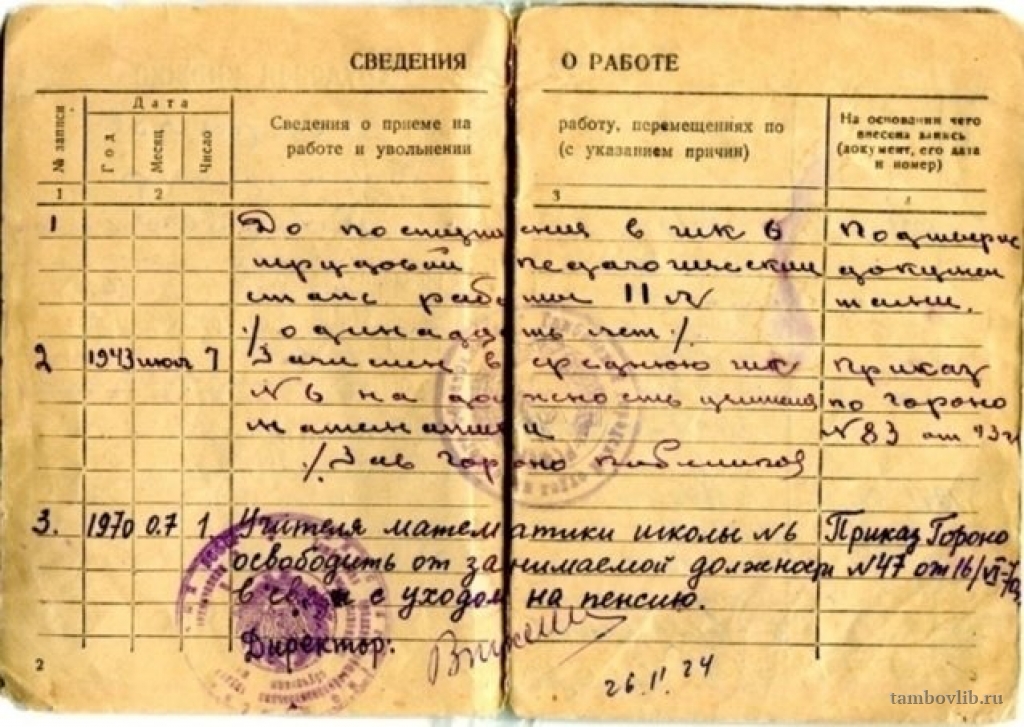 СВЕДЕНИЯ О РАБОТЕ
№ записи
Дата
Год
Месяц
Число
Сведения о приеме на работу, перемещениях по
работе и увольнении (с указанием причин)
На основании чего
внесена запись
(документ, его дата
и номер)
1 2 3 4
1 До поступления в шк 6
трудовой педагогический
стаж работы 11 л
/одинадцать лет/.
Подтвержд
докумен
тально.
2 1943 июля 7 Зачислен в среднюю шк
№6 на должность учителя
математики
/Зав гороно
Приказ
по гороно
№83 от 43 г
3. 1970 0.7 1 Учителя математики школы №6
освободить от занимаемой должности
в связи с уходом на пенсию.
Директор:
Приказ Гороно
№47 от 16/VI-70г.
26.II.24
2
tambovlib.ru